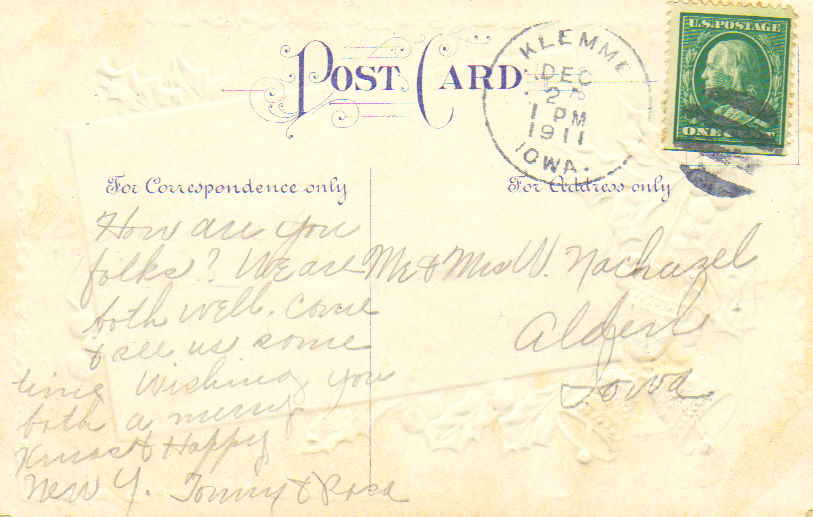 POST CARD
KLEMME
DEC
2
1 PM
1911
IOWA.
U.S. POSTAGE
ONE
For Correspondence only
For Address only
How are you
folks? We are
both well. Come
& see us some
time Wishing you
both a merry
Xmas & Happy
New Y. Tommy & Rosa
Mr & Mrs W. Nachazel
Alden
Iowa